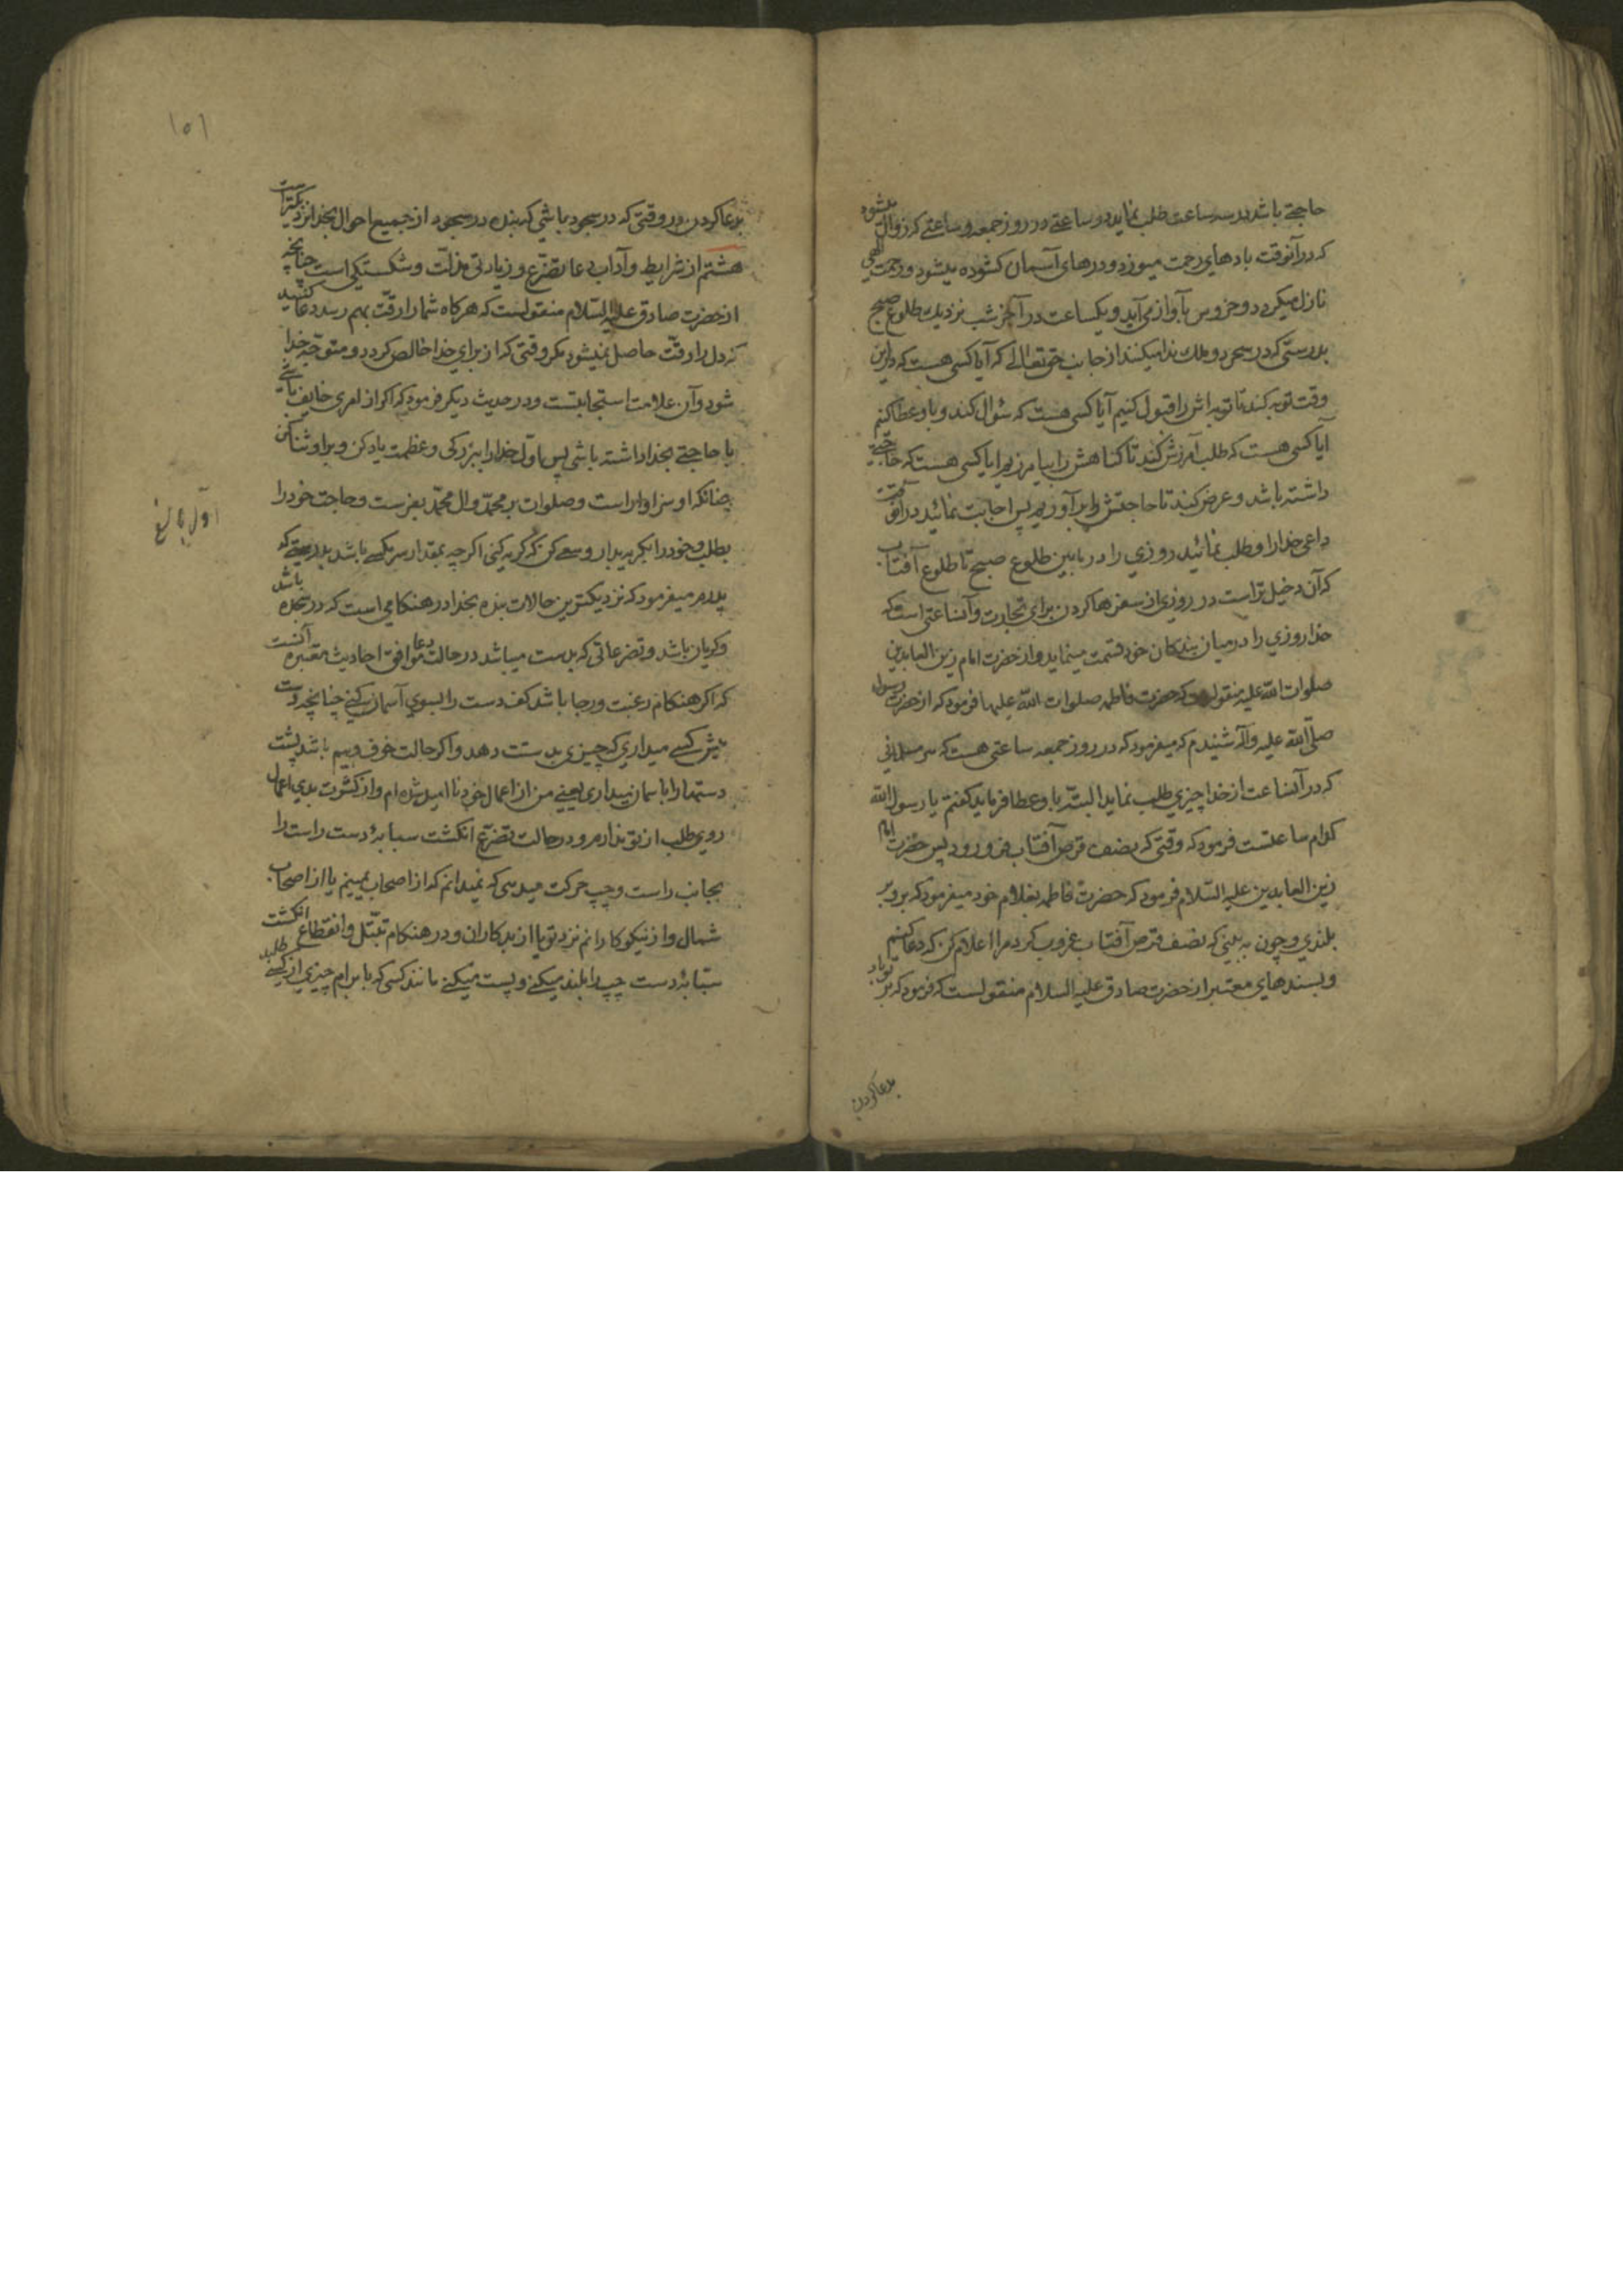 حاجتے باشد در سه ساعت طلب نماید در ساعتے در روز جمعه و ساعتے که زوال میشود
که در آنوقت بادهای رحمت میوزد و درهای آسمان کشوده میشود و رحمت الهی
نازل میکردد و خروس بآواز می آید و یکساعت در آخر شب نزدیك طلوع صبح
بدرستی که در سحر دو ملك ندا میکنند از جانب حق تعالی که آیا کسی هست که در این
وقت توبه کند تا توبه اش را قبول کنیم آیا کسی هست که سئوال کند و باو عطا کنم
ایا کسی هست که طلب آمرزش کند تا کناهش را بیامرزیم ایا کسی هست که حاجتے
داشته باشد و عرض کند تا حاجتش را برآوریم پس اجابت نمائید در آنوقت
داعی خدا را و طلب نمائید روزي را در مابین طلوع صبح تا طلوع آفتاب
که آن دخیل تر است در روزی از سفرها کردن برای تجارت و آنساعتی است که
خدا روزي را در میان بندکان خود قسمت مینماید و از حضرت امام زین العابدین
صلوات الله علیه منقولست که حضرت فاطمه صلوات الله علیها فرمود که از حضرت رسول
صلّی الله علیه وآله شنیدم که میفرمود که در روز جمعه ساعتی هست که هر مسلمانی
که در آنساعت از خدا چیزي طلب نماید البتّه باو عطا فرماید کفتم یا رسول الله
کدام ساعتست فرمود که وقتی که نصف قرص آفتاب فرو رود پس حضرت امام
زین العابدین علیه السّلام فرمود که حضرت فاطمه بغلام خود میفرمود که برو بر
بلندي و چون به بینی که نصف قرص آفتاب غروب کرد مرا اعلام کن که دعا کنم
و بسندهای معتبر از حضرت صادق علیه السلام منقولست که فرمود که بر تو باد
بدعا کردن
۱۵۱
بدعا کردن در وقتی که در سجود باشي که بنده در سجود از جمیع احوال بخدا نزدیکتر است
هشتم از شرایط و آداب دعا تضرّع و زیادتی مذلّت و شکستکی است چنانچه
از حضرت صادق علیه السّلام منقولست که هرکاه شما را رقّت بهم رسد دعا کنید
که دل را رقّت حاصل نمیشود مکر وقتی که از برای خدا خالص کردد و متوجّه خدا
شود و آن علامت استجابتست و در حدیث دیکر فرمود که اکر از امری خایف باشے
یا حاجتے بخدا داشته باشی پس اوّل خدا را ببزرکی و عظمت یاد کن و بر او ثنا کن
چنانکه او سزاوار است و صلوات بر محمّد و ال محمّد بفرست و حاجت خود را
بطلب و خود را بکریه بدار و سعی کن که کریه کنی اکرچه بمقدار سر مکسے باشد بدرستے که
پدرم میفرمود که نزدیکترین حالات بنده بخدا در هنکامي است که در سجده باشد
و کریان باشد و تضرعاتی که بدست میباشد در حالت دعا موافق احادیث معتبره آنست
که اکر هنکام رغبت و رجا باشد کف دست را بسوي آسمان کنی چنانچه دست
پیش کسے میداري که چیزی بدستت دهد و اکر حالت خوف و بیم باشد پشت
دستها را باسمان میداری یعنی من از اعمال خود نا امید شده ام و از کثرت بدي اعمال
روی طلب از تو ندارم و در حالت تضرّع انکشت سبابهٔ دست راست را
بجانب راست و چپ حرکت میدهی که نمیدانم که از اصحاب یمینم یا از اصحاب
شمال و از نیکوکارانم نزد تو یا از بدکاران و در هنکام تبتّل و انقطاع انکشت
سبّابهٔ دست چپ را بلند میکنے و پست میکنے مانند کسی که بابرام چیزي از کسے طلبد